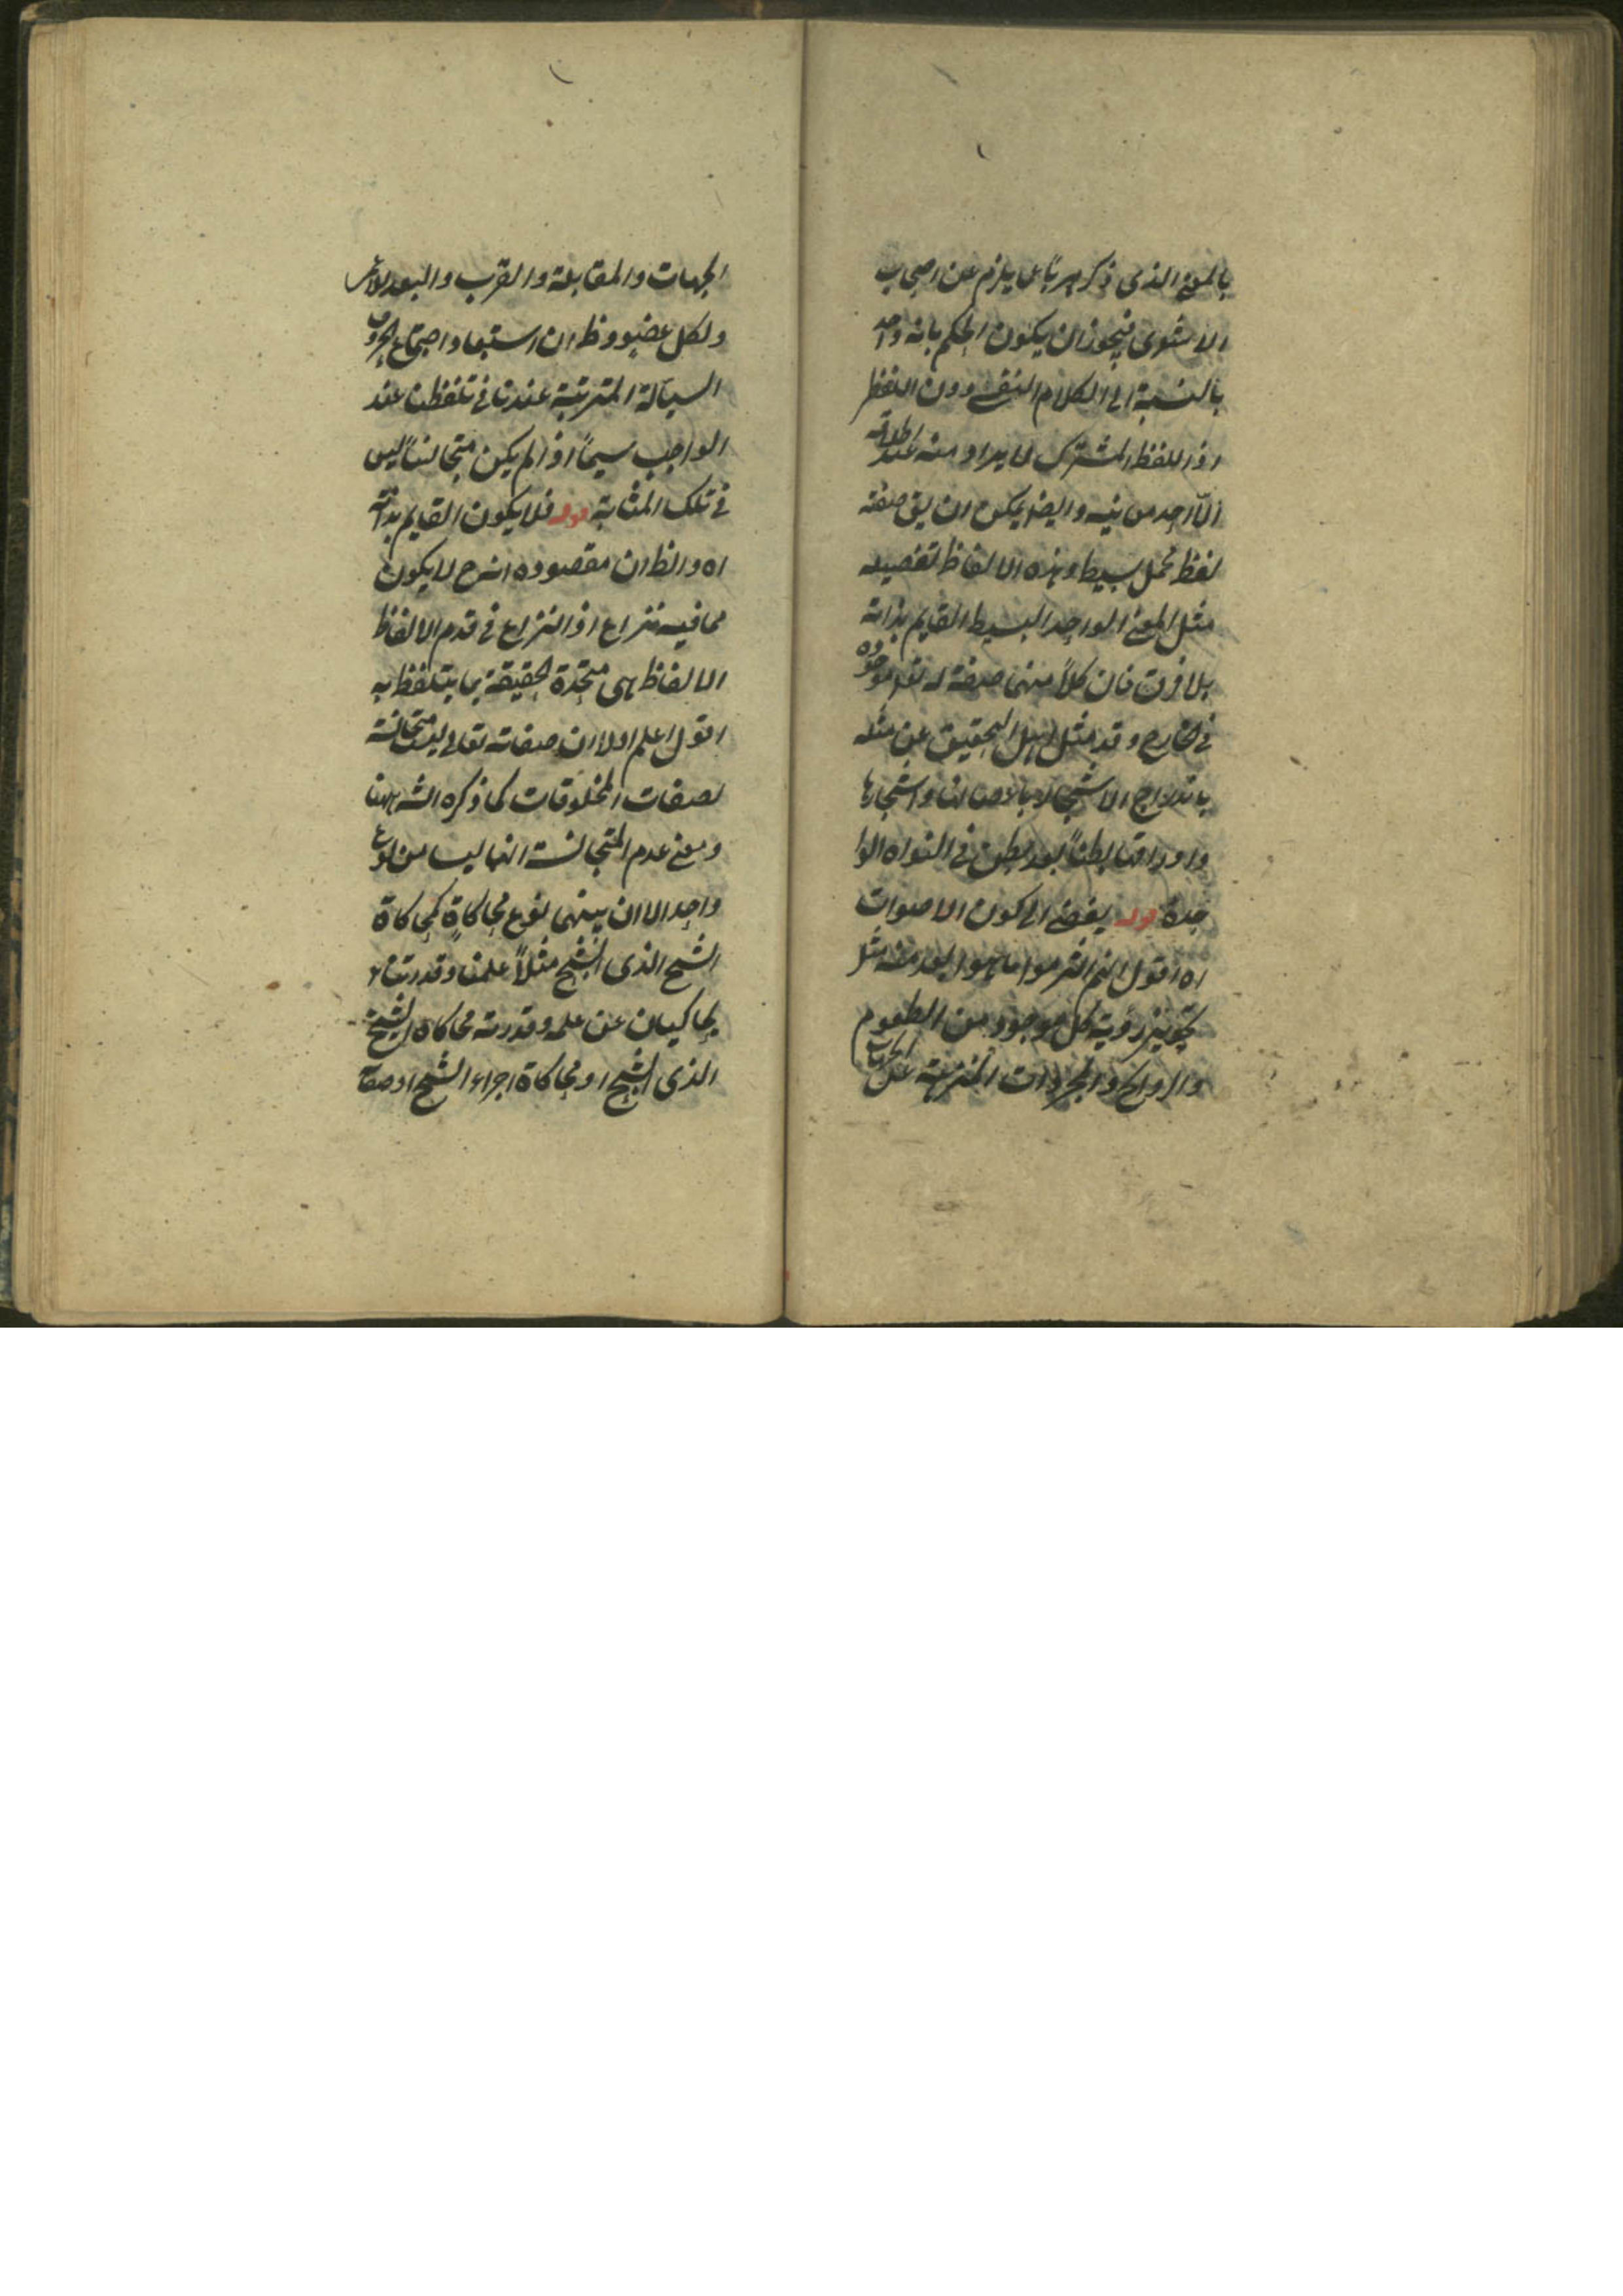 بالمعنى الذى ذكر هربا عما يلزم عن اصحاب
الاشعرى فيجوز ان يكون الحكم بانه واحد
بالنسبة الى الكلام النفسى دون اللفظى
اذ اللفظ المشترك لا يراد منه عند اطلاقه
الا احد معنييه وايضا يمكن ان يق صفته
لفظ مجمل بسيط وهذه الالفاظ تفصيله
مثل المعنى الواحد البسيط القايم بذاته
بلا فرق فان كلا منهما صفة له تع موجوده
فى الخارج وقد مثل اهل التحقيق عن مثله
باندراج الاشجار باغصانها واشجارها
واوراقها بطنا بعد بطن فى النواه الوا
حدة قوله يفضى الى كون الاصوات
اه اقول انهم التزموا ما هو ابعد منه مثل
تجويز رؤية كل موجود من الطعوم
والروايح والمجردات المنزهة عن الجهات
الجهات والمقابلة والقرب والبعد
ولكل عضو وظ ان استبعاد اجتماع الحروف
السيالة المترتبة عندنا فى تلفظنا عند
الواجب سيما اذا لم يكن متجانسا ليس
فى تلك المثابة قوله فلا يكون القايم بذاته
اه والظ ان مقصوده انه ح لا يكون
مما فيه نزاع اذ النزاع فى قدم الالفاظ
الالفاظ هى متحدة الحقيقة بما يتلفظ به
اقول اعلم اولا ان صفاته تعالى ليست متجانسة
لصفات المخلوقات كما ذكره الشه ههنا
ومعنى عدم المتجانسة انها ليسا من نوع
واحد الا ان بينهما نوع محاكاة كمحاكاة
الشبح الذى الشبح مثلا علمنا وقدرتنا
يحاكيان عن علمه وقدرته محاكاة الشبح
الذى الشبح او محاكاة اجزاء الشبح اوصاف